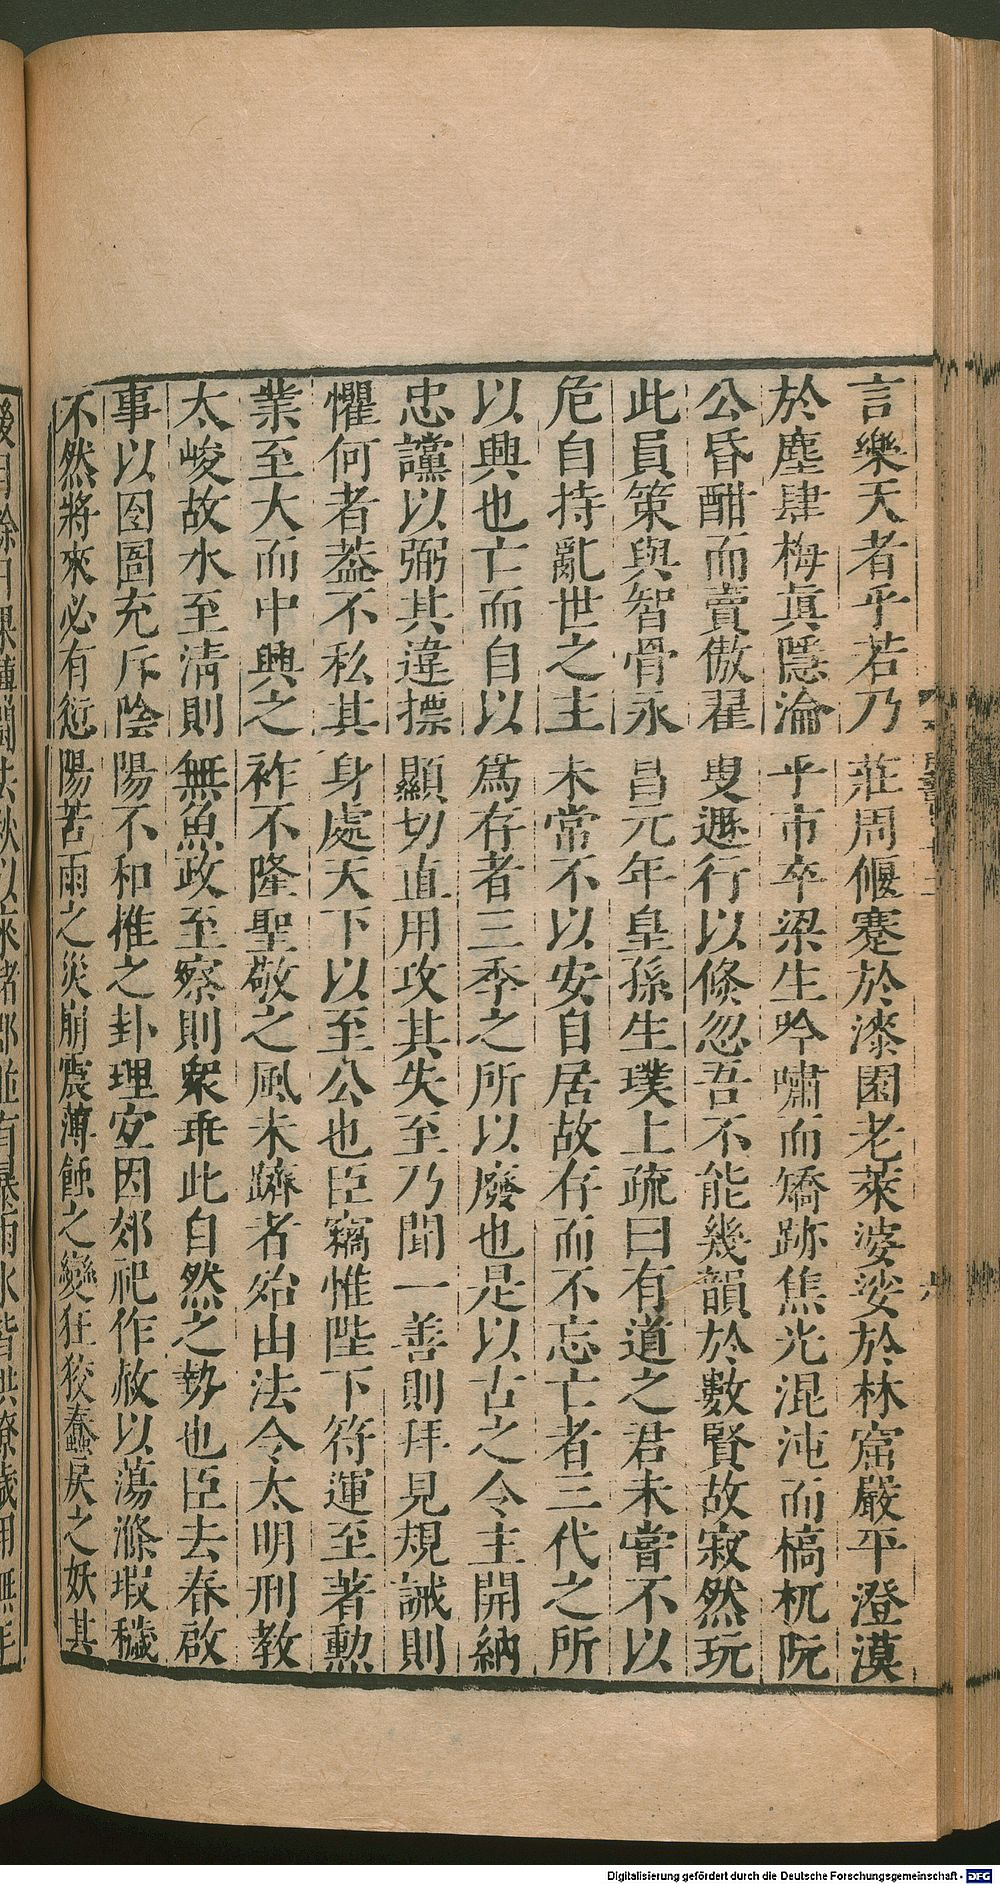 言樂天者乎若乃莊周偃蹇於漆園老萊婆娑於林窟嚴平澄漠
於塵肆梅眞隱淪乎市卒梁生吟嘯而矯跡焦光混沌而槁杌阮
公昏酣而賣傲翟叟遯行以倏忽吾不能幾韻於數賢故寂然玩
此員策與智骨永昌元年皇孫生璞上疏曰有道之君未嘗不以
危自持亂世之主未常不以安自居故存而不忘亡者三代之所
以興也亡而自以爲存者三季之所以廢也是以古之令主開納
忠讜以弼其違摽顯切直用攻其失至乃聞一善則拜見規誡則
懼何者葢不私其身處天下以至公也臣竊惟陛下符運至著勲
業至大而中興之祚不隆聖敬之風未躋者殆由法令太明刑教
太峻故水至清則無魚政至察則衆乖此自然之勢也臣去春啟
事以囹圄充斥陰陽不和推之卦理宜因郊祀作赦以蕩滌瑕穢
不然將來必有愆陽苦雨之災崩震薄蝕之變狂狡蠢戾之妖其
Digitalisierung gefördert durch die Deutsche Forschungsgemeinschaft - DFG